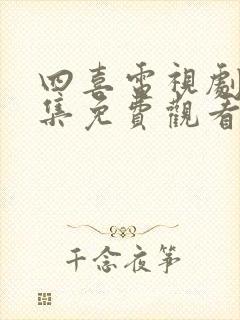 四喜電視劇
集免費觀看
千念夜箏